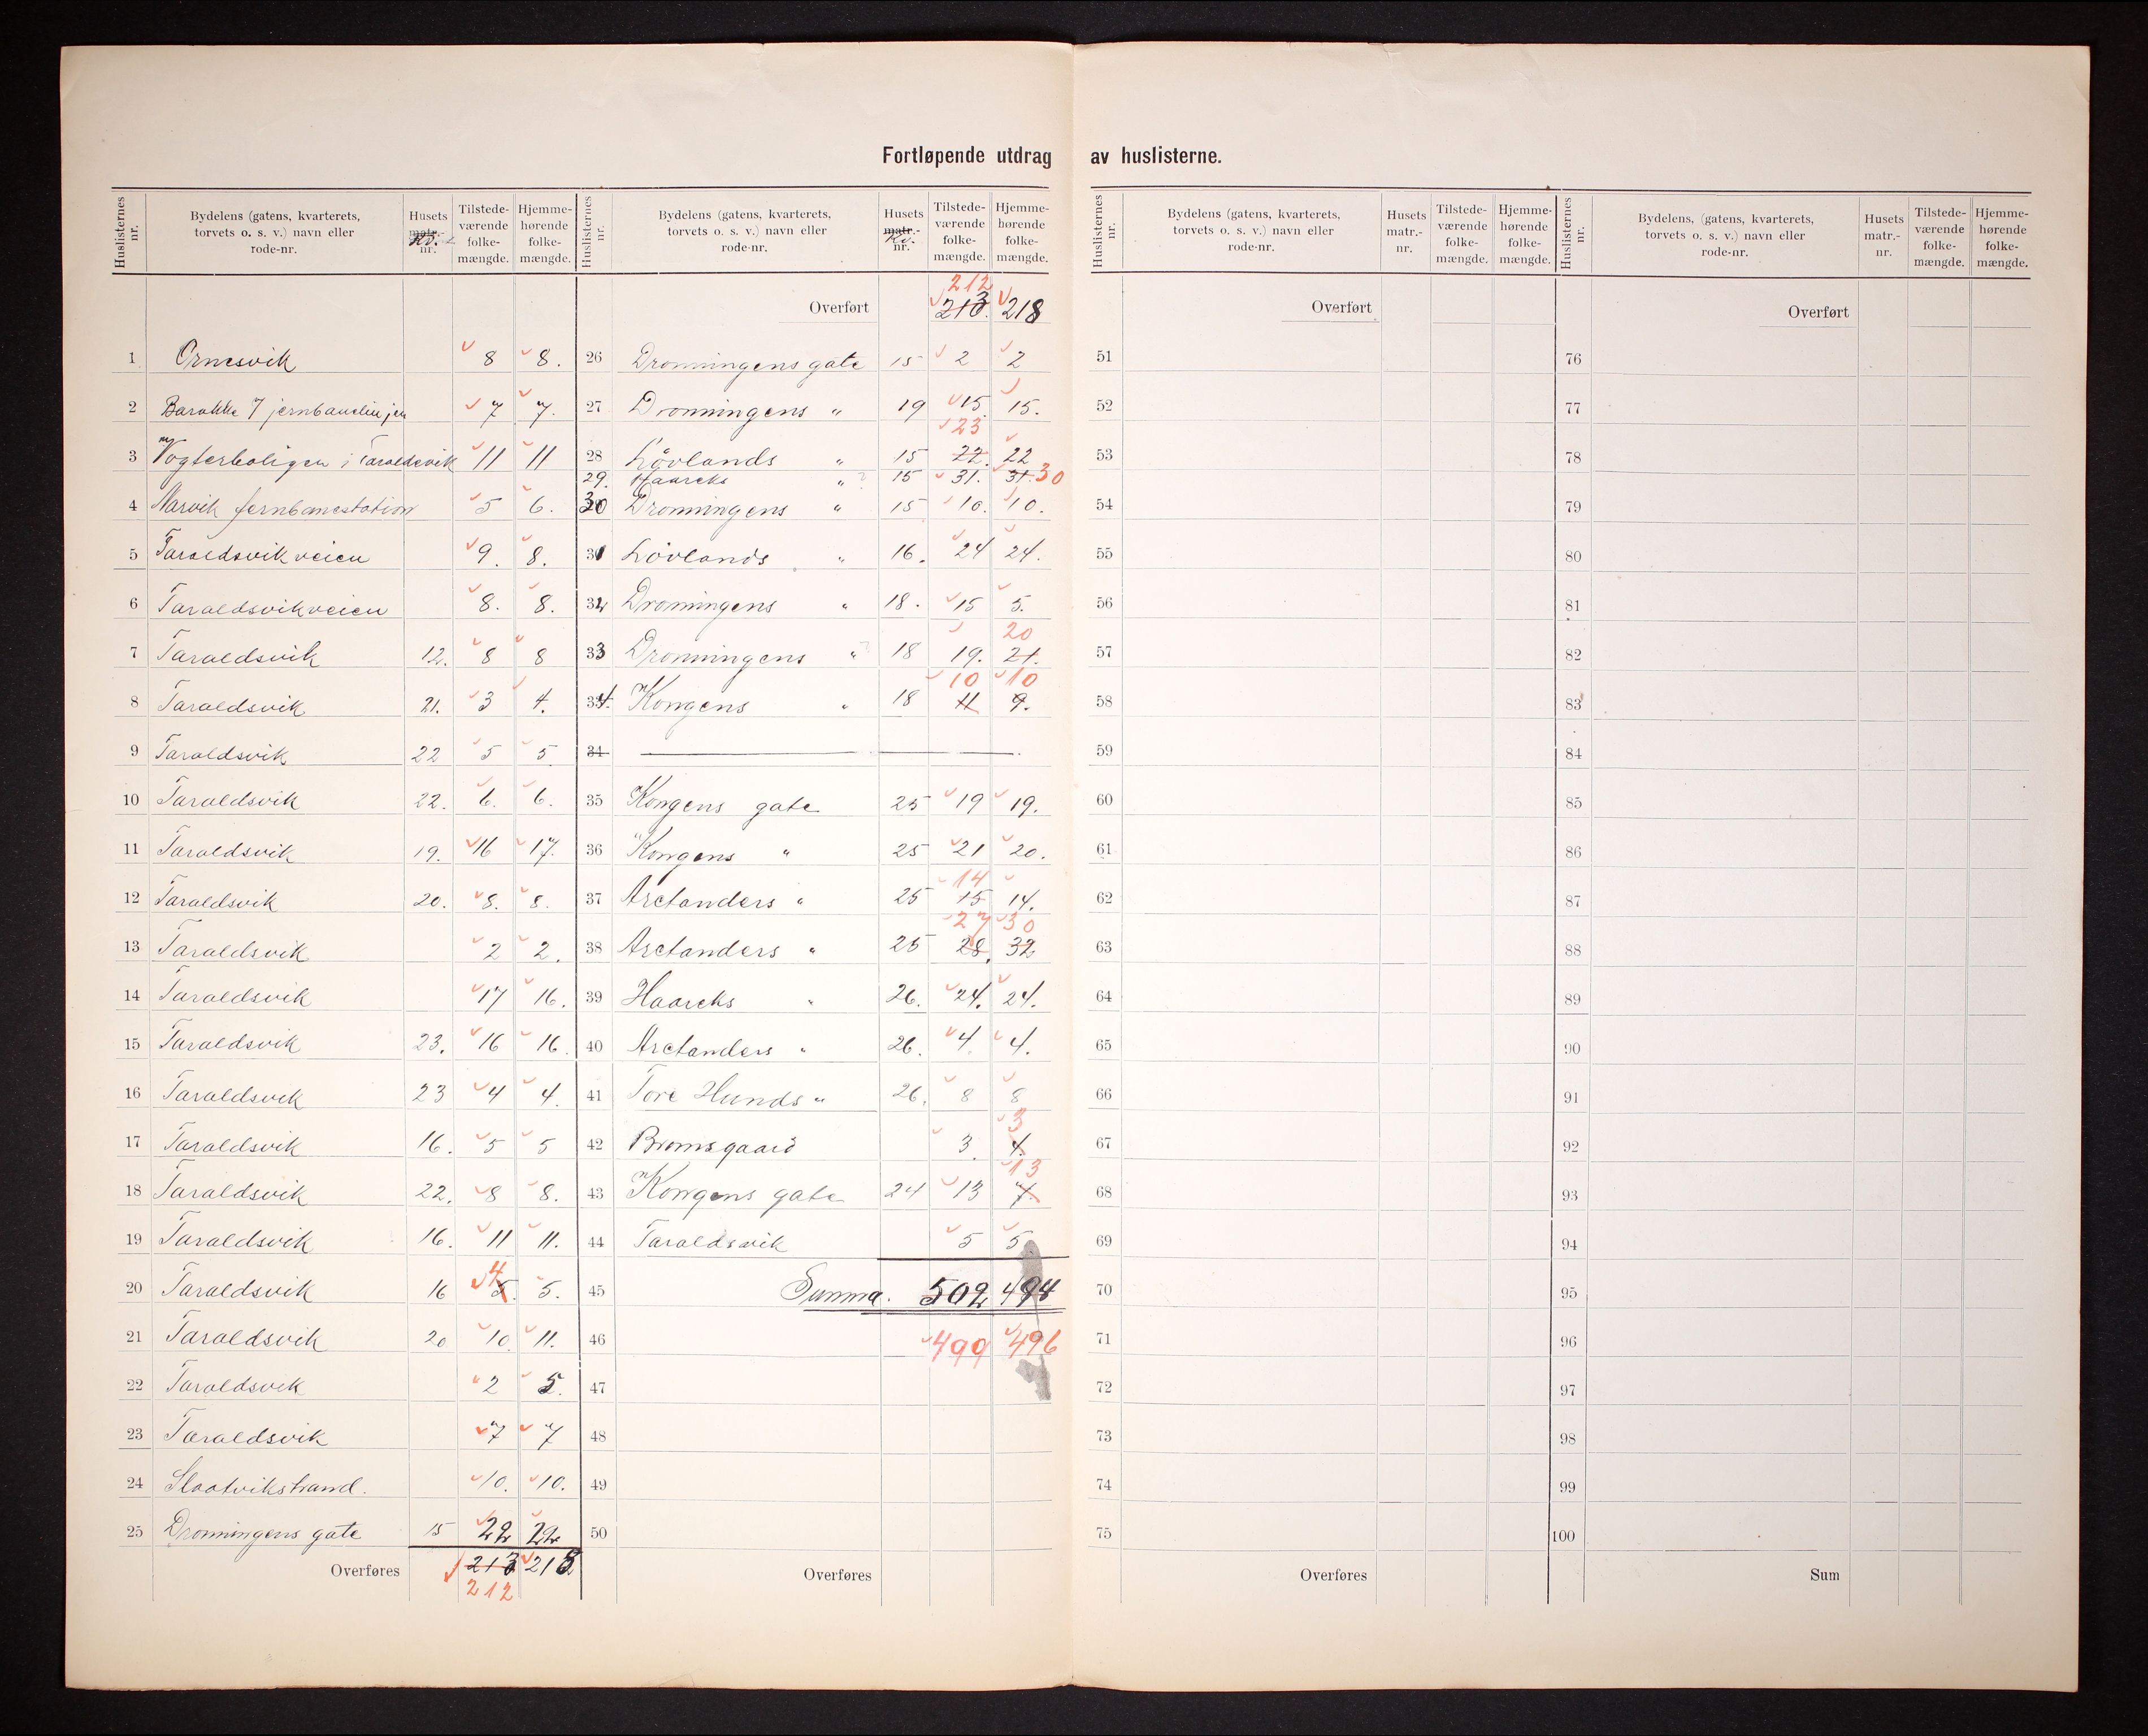 Fortløpende utdrag av huslisterne.
Huslisternes nr. | Bydelens (gatens, kvarterets, torvets o. s. v.) navn eller rode-nr. | Husets matr.- Kv. nr. | Tilstede-værende folke-mængde. | Hjemme-hørende folke-mængde.
1 Ornesvik 8 8.
2 Barakke 7 jernbanelinjen 7 7.
3 Vogterboligen i Taraldsvik 11 11
4 Narvik jernbanestation 5 6.
5 Taraldsvikveien 9. 8.
6 Taraldsvikveien 8. 8.
7 Taraldsvik 12. 8 8
8 Taraldsvik 21. 3 4.
9 Taraldsvik 22 5 5.
10 Taraldsvik 22. 6. 6.
11 Taraldsvik 19. 16 17.
12 Taraldsvik 20. 8. 8.
13 Taraldsvik 2 2.
14 Taraldsvik 17 16.
15 Taraldsvik 23. 16 16.
16 Taraldsvik 23 4 4.
17 Taraldsvik 16. 5 5
18 Taraldsvik 22. 8 8.
19 Taraldsvik 16. 11 11.
20 Taraldsvik 16 5. 4 5.
21 Taraldsvik 20 10. 11.
22 Taraldsvik 2 5.
23 Taraldsvik 7 7
24 Slaatvikstrand. 10. 10.
25 Dronningens gate 15 22 22
Overføres 213 218
212
Huslisternes nr. | Bydelens (gatens, kvarterets, torvets o. s. v.) navn eller rode-nr. | Husets matr.- Kv. nr. | Tilstede-værende folke-mængde. | Hjemme-hørende folke-mængde.
212
Overført 213. 218
26 Dronningens gate 15 2 2
27 Dronningens " 19 15. 15.
28 Lövlands " 15 22. 23 22
29. Haareks " 15 31. 31. 30
30 Dronningens " 15 10. 10.
31 Lövlands " 16. 24 24.
32 Dronningens " 18. 15 5.
33 Dronningens " 18 19. 21. 20
34. Kongens " 18 11 10 9. 10
34
35 Kongens gate 25 19 19.
36 Kongens " 25 21 20.
37 Arctanders " 25 15 14 14.
38 Arctanders " 25 28. 27 32 30
39 Haareks " 26. 24. 24.
40 Arctanders " 26. 4. 4.
41 Tore Hunds " 26. 8 8
42 Bromsgaard 3. 4. 3
43 Kongens gate 24 13 7. 13
44 Taraldsvik 5 5.
45 Summa. 502 494
46 499 496
47
48
49
50
Overføres
Huslisternes nr. | Bydelens (gatens, kvarterets, torvets o. s. v.) navn eller rode-nr. | Husets matr.-nr. | Tilstede-værende folke-mængde. | Hjemme-hørende folke-mængde.
Overført
51
52
53
54
55
56
57
58
59
60
61
62
63
64
65
66
67
68
69
70
71
72
73
74
75
Overføres
Huslisternes nr. | Bydelens, (gatens, kvarterets, torvets o. s. v.) navn eller rode-nr. | Husets matr.-nr. | Tilstede-værende folke-mængde. | Hjemme-hørende folke-mængde.
Overført
76
77
78
79
80
81
82
83
84
85
86
87
88
89
90
91
92
93
94
95
96
97
98
99
100
Sum